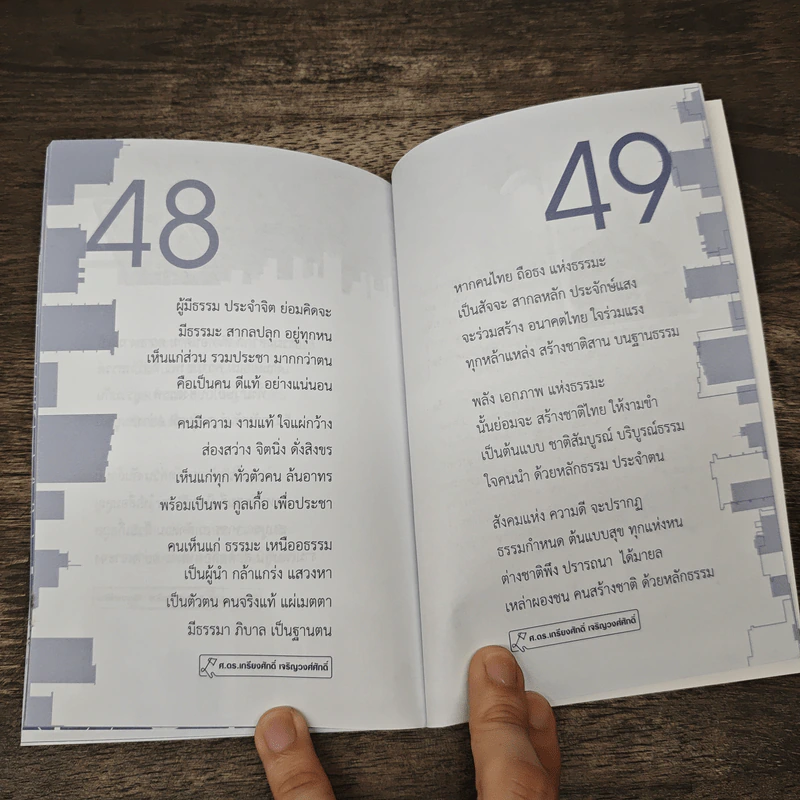 48
ผู้มีธรรม ประจำจิต ย่อมคิดจะ
มีธรรมะ สากลปลุก อยู่ทุกหน
เห็นแก่ส่วน รวมประชา มากกว่าตน
คือเป็นคน ดีแท้ อย่างแน่นอน
คนมีความ งามแท้ ใจแผ่กว้าง
ส่องสว่าง จิตนิ่ง ดั่งสิงขร
เห็นแก่ทุก ทั่วตัวคน ล้นอาทร
พร้อมเป็นพร กูลเกื้อ เพื่อประชา
คนเห็นแก่ ธรรมะ เหนืออธรรม
เป็นผู้นำ กล้าแกร่ง แสวงหา
เป็นตัวตน คนจริงแท้ แผ่เมตตา
มีธรรมา ภิบาล เป็นฐานตน
ศ.ดร.เกรียงศักดิ์ เจริญวงศ์ศักดิ์
49
หากคนไทย ถือธง แห่งธรรมะ
เป็นสัจจะ สากลหลัก ประจักษ์แสง
จะร่วมสร้าง อนาคตไทย ใจร่วมแรง
ทุกหล้าแหล่ง สร้างชาติสาน บนฐานธรรม
พลัง เอกภาพ แห่งธรรมะ
นั้นย่อมจะ สร้างชาติไทย ให้งามขำ
เป็นต้นแบบ ชาติสัมบูรณ์ บริบูรณ์ธรรม
ใจคนนำ ด้วยหลักธรรม ประจำตน
สังคมแห่ง ความดี จะปรากฏ
ธรรมกำหนด ต้นแบบสุข ทุกแห่งหน
ต่างชาติพึง ปรารถนา ได้มายล
เหล่าผองชน คนสร้างชาติ ด้วยหลักธรรม
ศ.ดร.เกรียงศักดิ์ เจริญวงศ์ศักดิ์